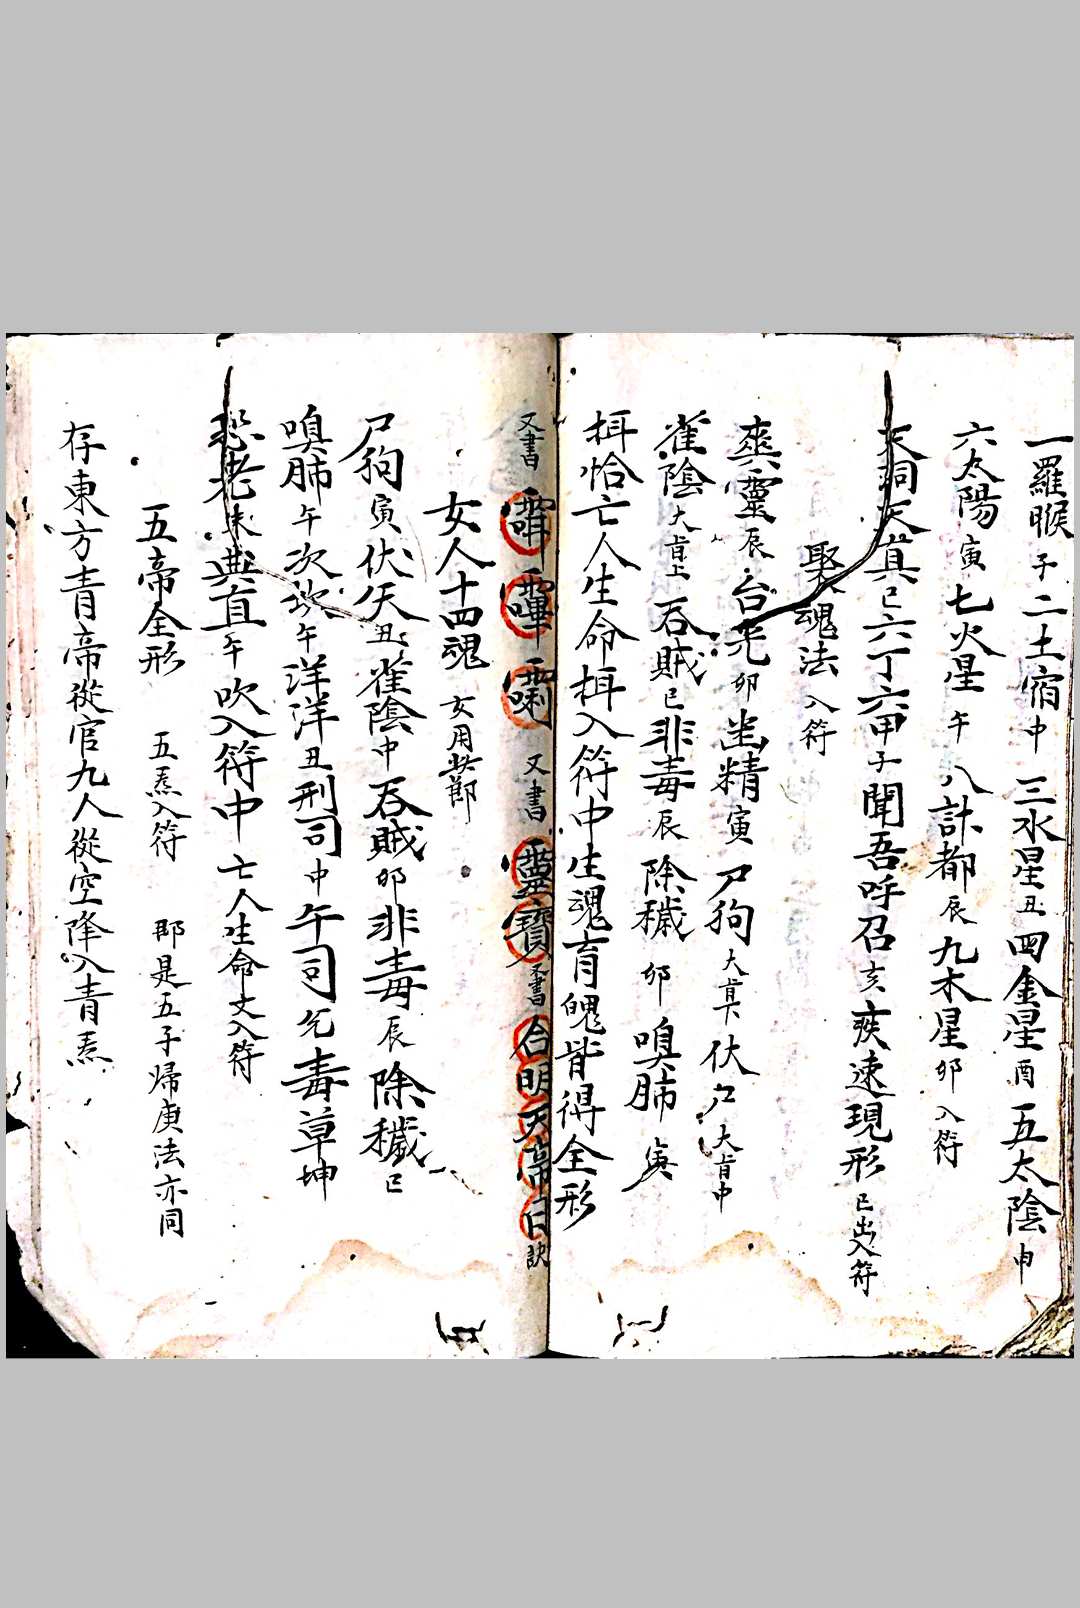 一羅睺子二土宿中三水星丑四金星酉五太陰申
六太陽寅七火星午八計都辰九木星卯入符
天洞天真已六丁六甲子聞吾呼召亥疾速現形已出入符
聚魂法入符
爽靈辰台光卯幽精寅尸狗大真下伏
雀陰大肯上吞賊已非毒辰除穢卯嗅肺寅
揖恰亡人生命揖入符中生魂育魄皆得全形
又書 又書靈寶又書合明天帝日訣
女人十四魂女用此節
尸狗寅伏矢丑雀陰中吞賊卯非毒辰除穢已
嗅肺午次 午洋洋丑刑司中午司 毒草坤
老未典直午吹入符中亡人生命文入符
五帝全形五炁入符那是五子歸庚法亦同
存東方青帝從官九人從空降入青炁